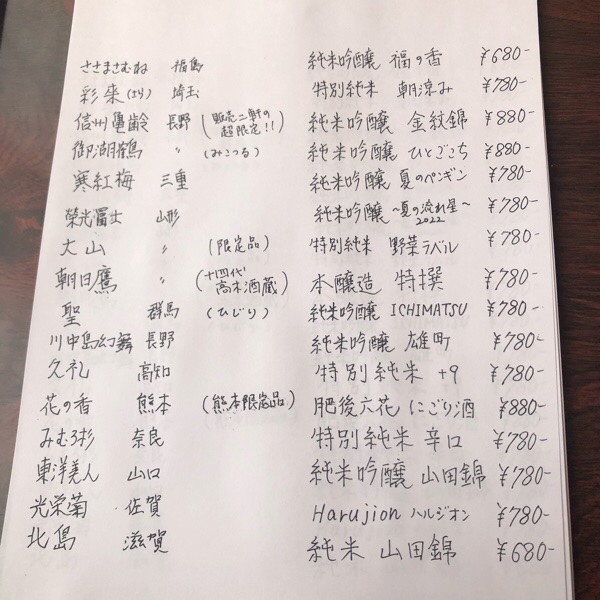 ささまさむね 福島 純米吟醸 福の香 ¥680-
彩來(さら) 埼玉 特別純米 朝涼み ¥780-
信州亀齢 長野 (販売二軒の超限定!!) 純米吟醸 金紋錦 ¥880-
御湖鶴 〃 (みこつる) 純米吟醸 ひとごこち ¥880-
寒紅梅 三重 純米吟醸 夏のペンギン ¥780-
榮光冨士 山形 純米吟醸 〜夏の流れ星〜 2022 ¥780-
大山 〃 (限定品) 特別純米 野菜ラベル ¥780-
朝日鷹 〃 (十四代 高木酒蔵) 本醸造 特撰 ¥780-
聖 群馬 (ひじり) 純米吟醸 ICHIMATSU ¥780-
川中島幻舞 長野 純米吟醸 雄町 ¥780-
久礼 高知 特別純米 +9 ¥780-
花の香 熊本 (熊本限定品) 肥後六花 にごり酒 ¥880-
みむろ杉 奈良 特別純米 辛口 ¥780-
東洋美人 山口 純米吟醸 山田錦 ¥780-
光栄菊 佐賀 Harujion ハルジオン ¥780-
北島 滋賀 純米 山田錦 ¥680-